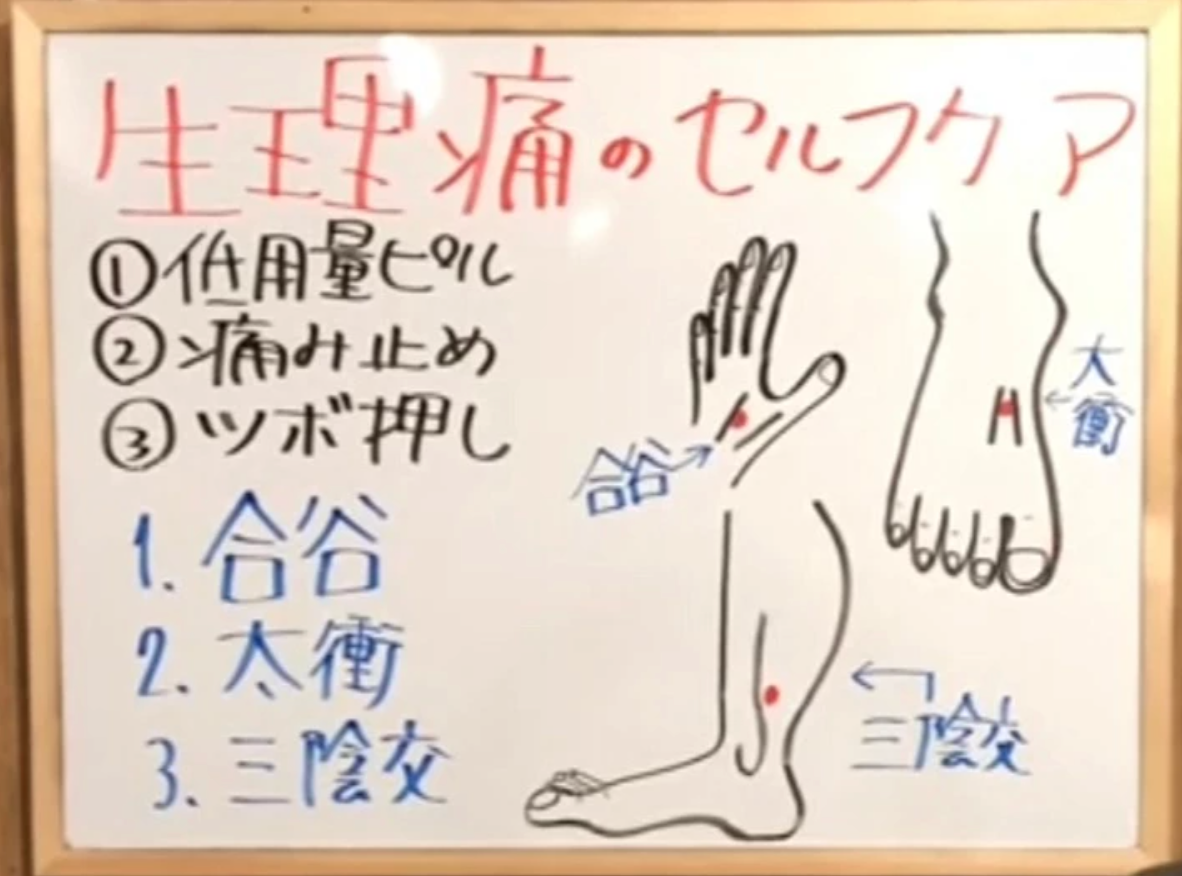 生理痛のセルフケア
①低用量ピル
②痛み止め
③ツボ押し
1. 合谷
2. 太衝
3. 三陰交
合谷
太衝
三陰交